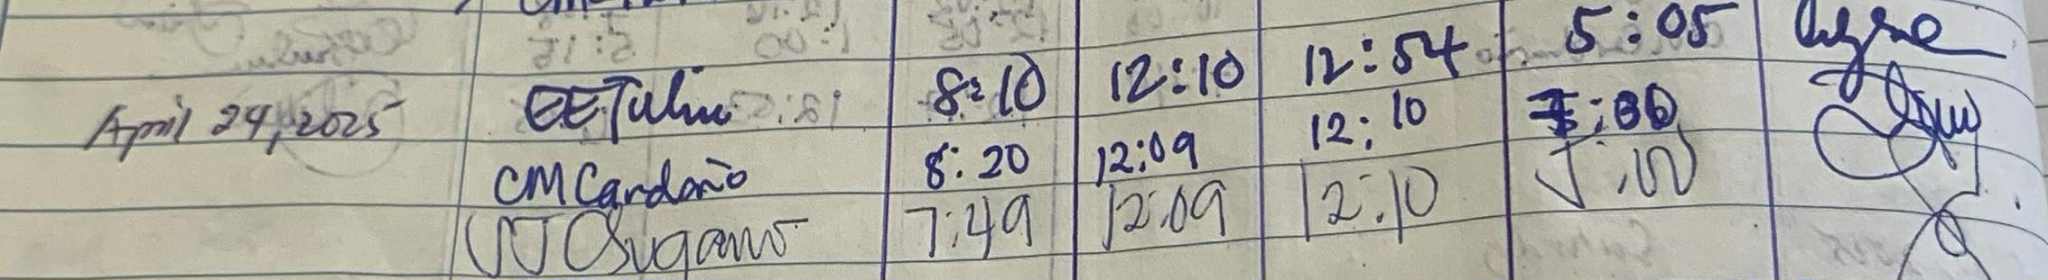 April 24, 2025 EETulin 8:10 12:10 12:54 5:05
CMCardaño 8:20 12:09 12:10 5:00
VJ Osugano 7:49 12:09 12:10 5:00